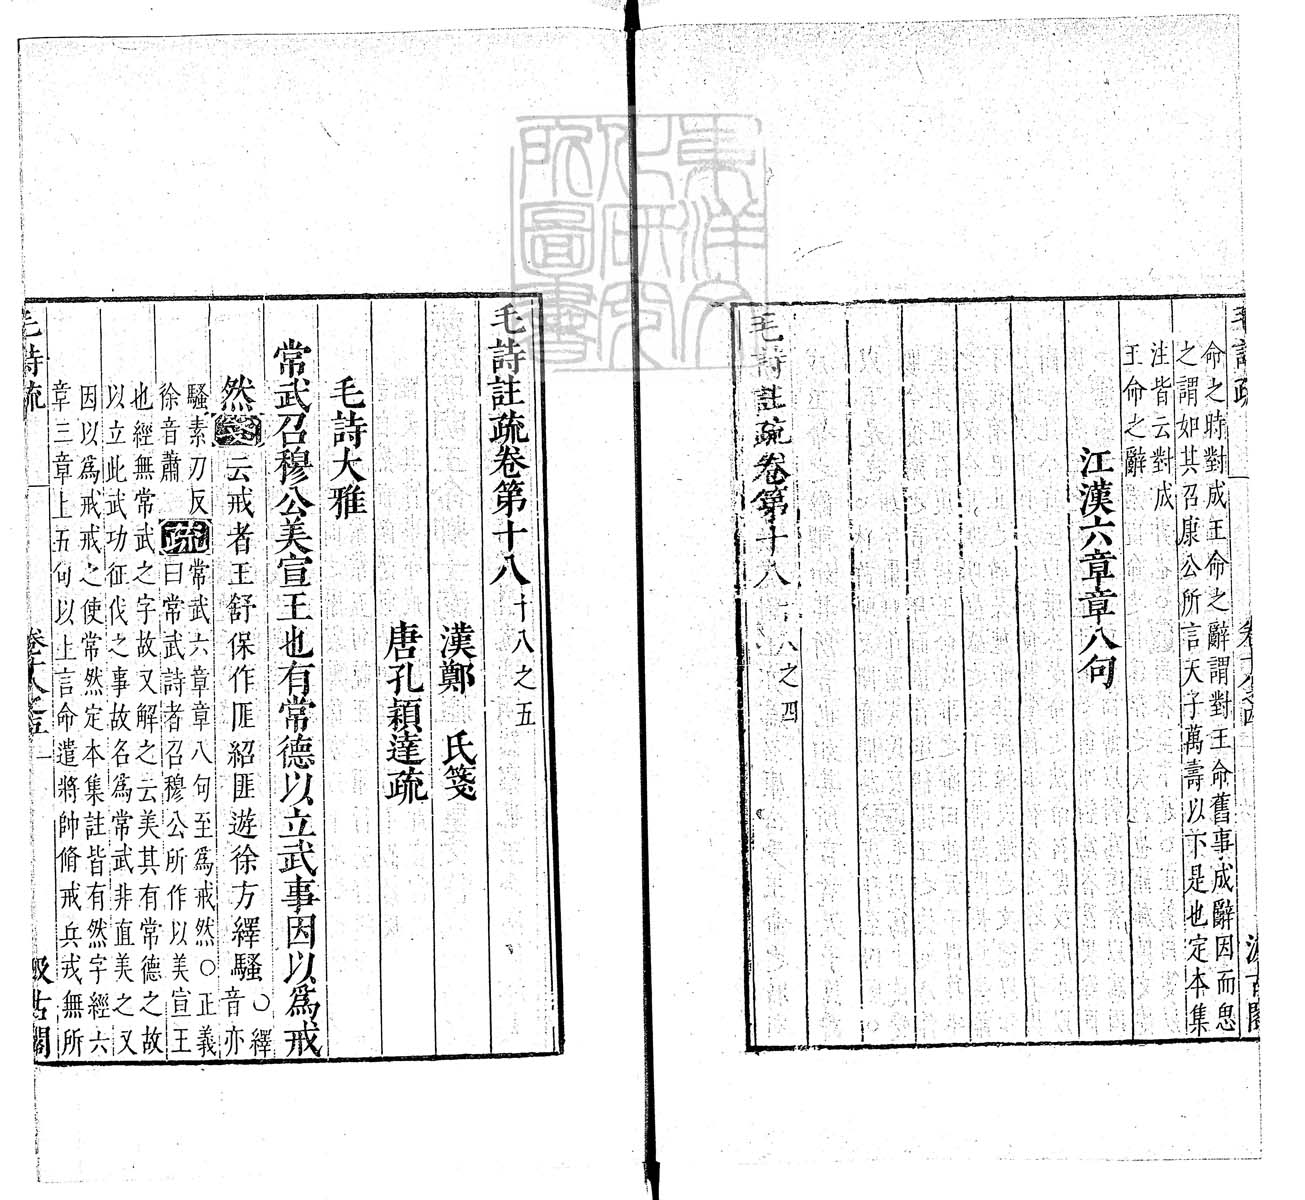 毛詩疏
卷十八之四
汲古閣
命之時對成王命之辭謂對王命舊事成辭因而思
之謂如其召康公所言天子萬壽以下是也定本集
注皆云對成
王命之辭
江漢六章章八句
毛詩註疏卷第十八 十八之四
東洋文化研究所圖書
毛詩註疏卷第十八 十八之五
漢鄭 氏箋
唐孔穎達疏
毛詩大雅
常武召穆公美宣王也有常德以立武事因以爲戒
然箋云戒者王舒保作匪紹匪遊徐方繹騷○繹
音亦
騷素刀反
徐音蕭
疏常武六章章八句至爲戒然○正義
曰常武詩者召穆公所作以美宣王
也經無常武之字故又解之云美其有常德之故
以立此武功征伐之事故名爲常武非直美之又
因以爲戒戒之使常然定本集註皆有然字經六
章三章上五句以上言命遣將帥脩戒兵戎無所
毛詩疏
卷十八之五
一
汲古閣